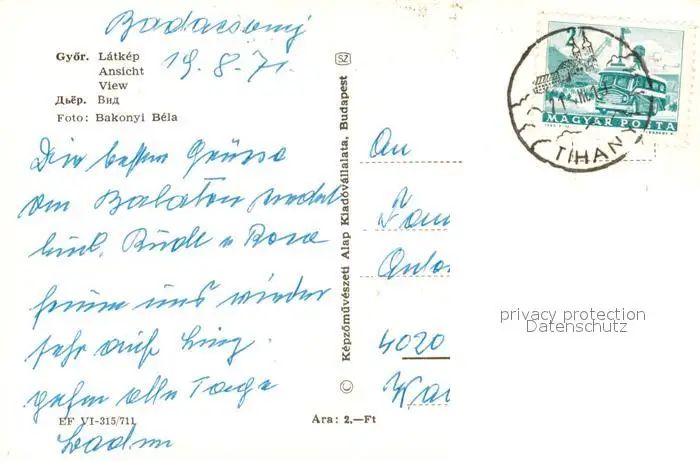 Badacsony
19.8.71.
Győr. Látkép
Ansicht
View
Дьёр. Вид
Foto: Bakonyi Béla
Die besten Grüsse
vom Balaton
Rudi u Rosa
freuen uns wieder
sehr auf Linz.
gehen alle Tage
baden
EF VI-315/711
Ara: 2.—Ft
Képzőművészeti Alap Kiadóvállalata, Budapest
SZ
An
Fam
Anto
4020
2
MAGYAR POSTA
TIHANY
privacy protection
Datenschutz